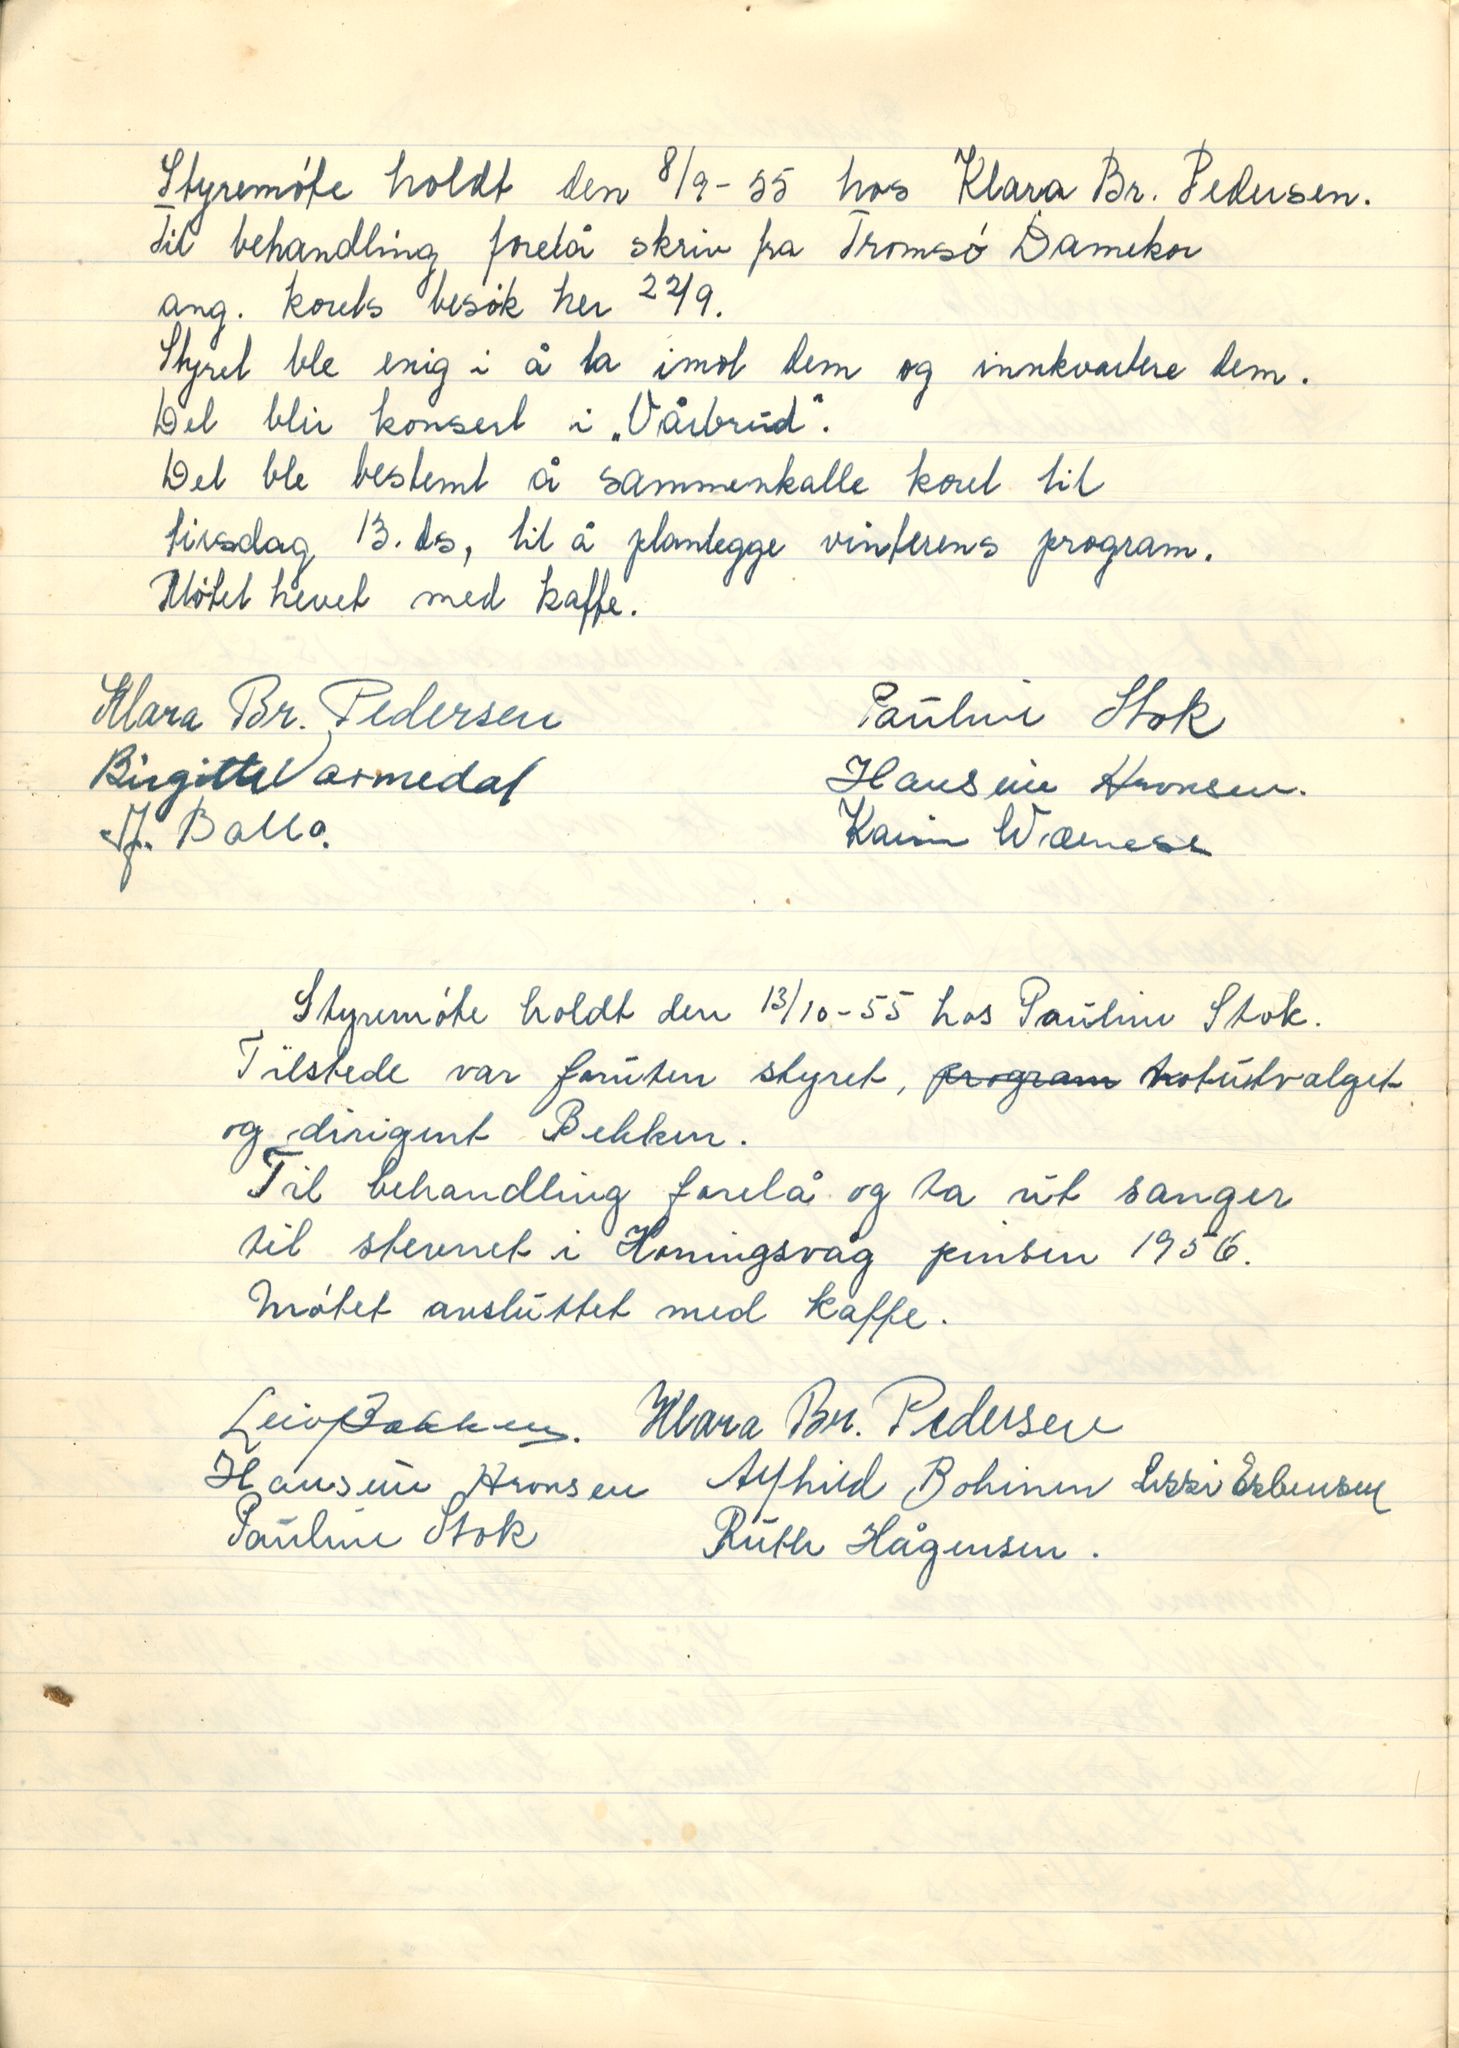 Styremøte holdt den 8/9-55 hos Klara Br. Pedersen.
Til behandling forelå skriv fra Tromsø Damekor
ang. korets besøk her 22/9.
Styret ble enig i å ta imot dem og innkvartere dem.
Det blir konsert i „Vårbrud“.
Det ble bestemt å sammenkalle koret til
tirsdag 13. ds, til å planlegge vinterens program.
Møtet hevet med kaffe.
Klara Br. Pedersen Pauline Stok
Birgitte Varmedal Hansine Aronsen.
Balto. Karin Wærnese
Styremøte holdt den 13/10-55 hos Pauline Stok.
Tilstede var foruten styret, program notutvalget
og dirigent Bekken.
Til behandling forelå og ta ut sanger
til stevnet i Honingsvåg pinsen 1956.
Møtet avsluttet med kaffe.
Leif Bakken. Klara Br. Pedersen
Hansine Aronsen Alfhild Bohinen Lizzi Esbensen
Pauline Stok Ruth Hågensen.